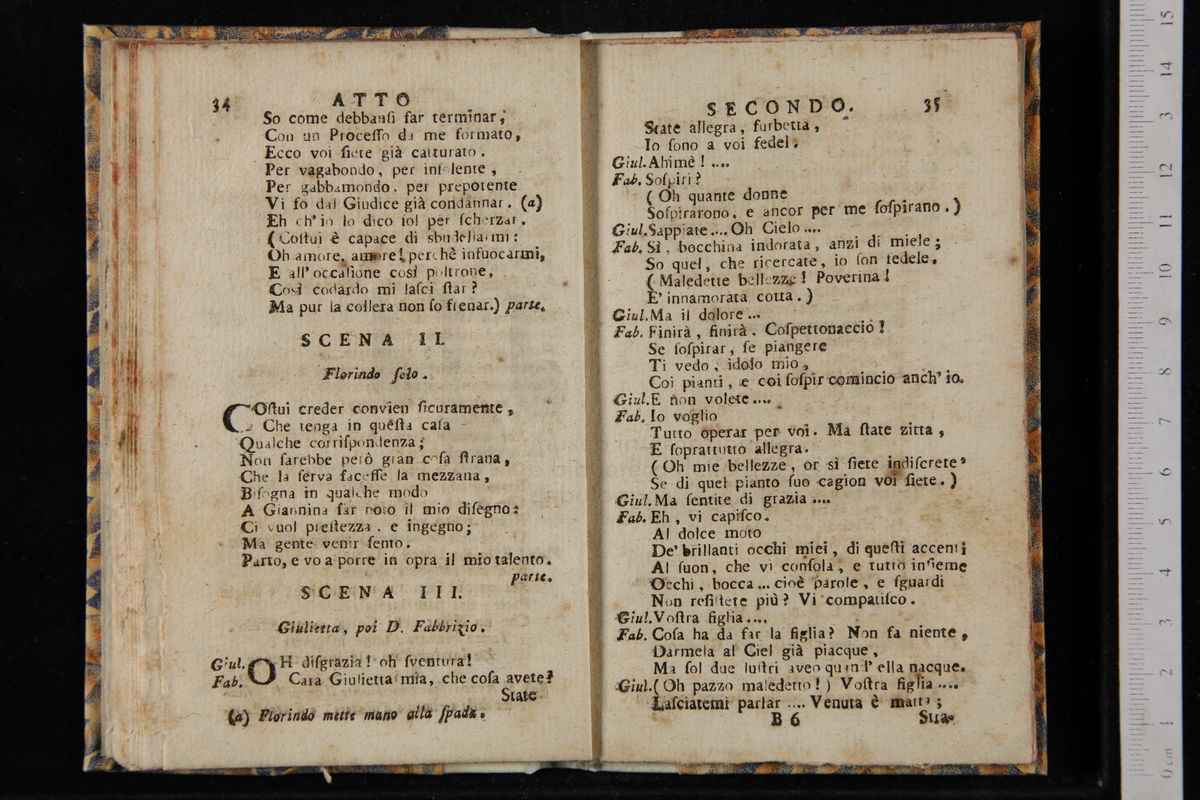 34 ATTO
So come debbanſi far terminar;
Con un Proceſſo da me formato,
Ecco voi ſiete già catturato.
Per vagabondo, per inſolente,
Per gabbamondo, per prepotente
Vi fo dal Giudice già condannar. (a)
Eh ch'io lo dico ſol per ſcherzar.
(Coſtui è capace di sbudellarmi:
Oh amore, amore! perchè infuocarmi,
E all'occaſione così poltrone,
Così codardo mi laſci ſtar?
Ma pur la collera non ſo frenar.) parte.
SCENA II.
Florindo ſolo.
COſtui creder convien ſicuramente,
Che tenga in queſta caſa
Qualche corriſpondenza;
Non ſarebbe però gran coſa ſtrana,
Che la ſerva faceſſe la mezzana,
Biſogna in qualche modo
A Giannina far noto il mio diſegno:
Ci vuol preſtezza, e ingegno;
Ma gente venir ſento.
Parto, e vo a porre in opra il mio talento.
parte.
SCENA III.
Giulietta, poi D. Fabbrizio.
Giul. OH diſgrazia! oh ſventura!
Fab. Cara Giulietta mia, che coſa avete?
State
(a) Florindo mette mano alla ſpada.
SECONDO. 35
State allegra, furbetta,
Io ſono a voi fedel.
Giul. Ahimè! ....
Fab. Soſpiri?
(Oh quante donne
Soſpirarono, e ancor per me ſoſpirano.)
Giul. Sappiate .... Oh Cielo ....
Fab. Sì, bocchina indorata, anzi di miele;
So quel, che ricercate, io ſon fedele.
(Maledette bellezze! Poverina!
E' innamorata cotta.)
Giul. Ma il dolore ...
Fab. Finirà, finirà. Coſpettonaccio!
Se ſoſpirar, ſe piangere
Ti vedo, idolo mio,
Coi pianti, e coi ſoſpir comincio anch'io.
Giul. E non volete ....
Fab. Io voglio
Tutto operar per voi. Ma ſtate zitta,
E ſoprattutto allegra.
(Oh mie bellezze, or sì ſiete indiſcrete,
Se di quel pianto ſuo cagion voi ſiete.)
Giul. Ma ſentite di grazia ....
Fab. Eh, vi capiſco.
Al dolce moto
De' brillanti occhi miei, di queſti accenti
Al ſuon, che vi conſola, e tutto inſieme
Occhi, bocca ... cioè parole, e ſguardi
Non reſiſtete più? Vi compatiſco.
Giul. Voſtra figlia ....
Fab. Coſa ha da far la figlia? Non fa niente,
Darmela al Ciel già piacque,
Ma ſol due luſtri aveo quand' ella nacque.
Giul. (Oh pazzo maledetto!) Voſtra figlia ....
Laſciatemi parlar .... Venuta è matta;
B 6 Sua
0 cm 1 2 3 4 5 6 7 8 9 10 11 12 3 14 15